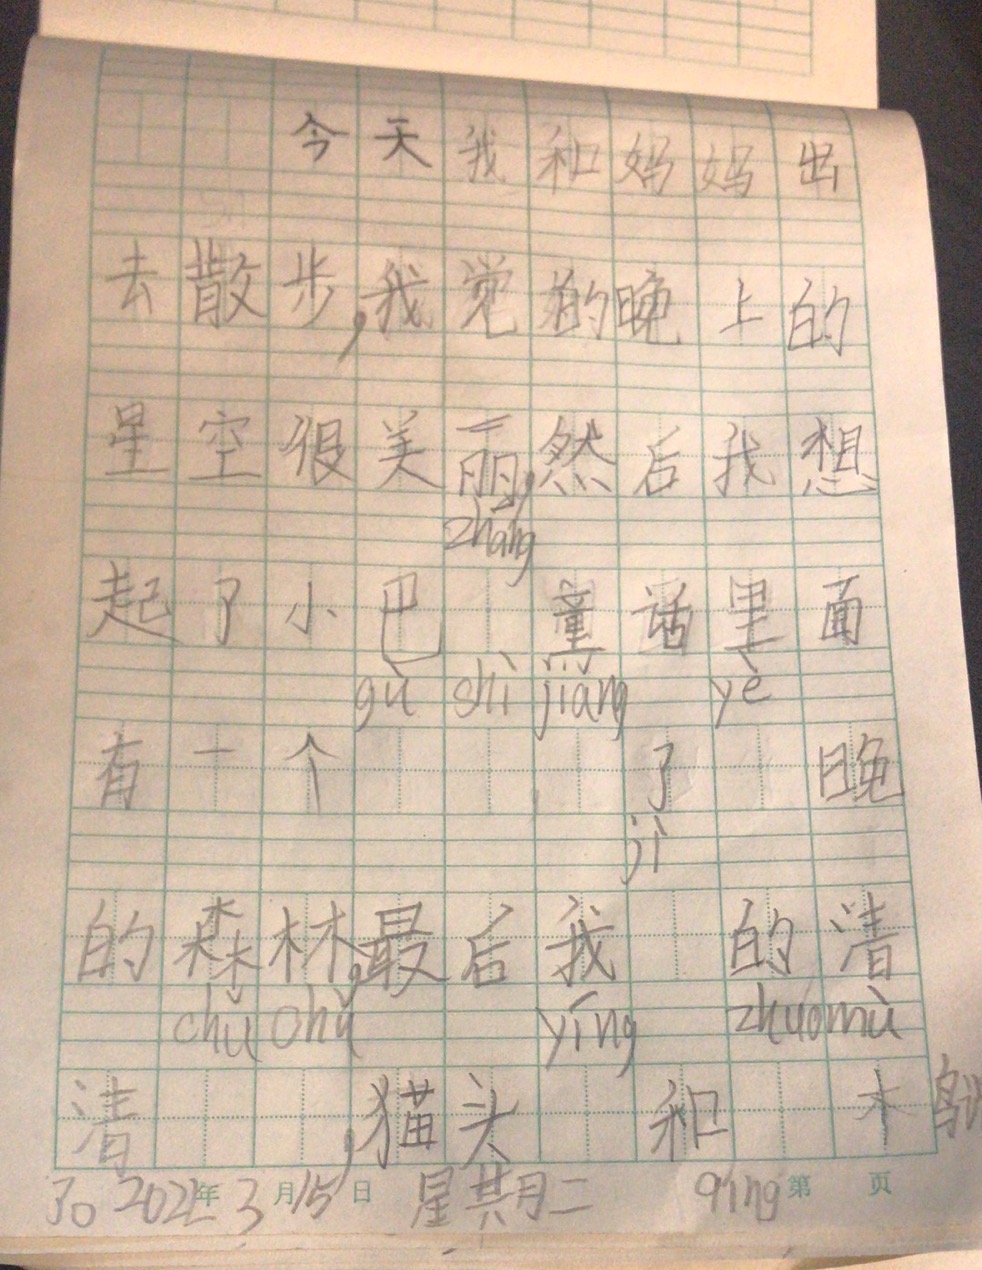 今天我和妈妈出
去散步,我觉的晚上的
星空很美丽,然后我想
zhāng
起了小巴 童话里面
gù shì jiang yè
有一个 了 晚
jì
的森林,最后我 的清
chǔ chǔ yīng zhuo mù
清 ,猫头 和 木鸟
30 2022年3月15日 星其月二 qīng 第 页